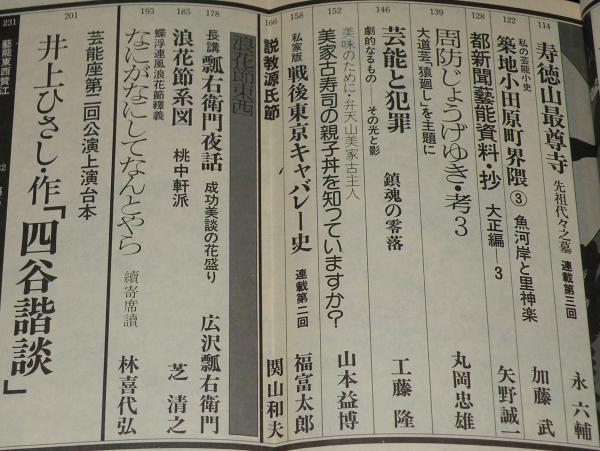 114
寿徳山最尊寺 先祖代々之墓 連載第三回 永 六輔
122
私の芸能小史
築地小田原町界隈③ 魚河岸と里神楽 加藤 武
128
都新聞藝能資料・抄 大正編—3 矢野誠一
139
周防じょうげゆき・考3
大道芸、猿廻し、を主題に 丸岡忠雄
146
芸能と犯罪 鎮魂の零落 工藤 隆
劇的なるもの その光と影
152
美味のために・弁天山美家古主人
美家古寿司の親子丼を知っていますか? 山本益博
158
私家版 戦後東京キャバレー史 連載第二回 福富太郎
166
説教源氏節 関山和夫
浪花節東西
178
長講 瓢右衛門夜話 成功美談の花盛り 広沢瓢右衛門
185
浪花節系図 桃中軒派 芝 清之
193
蝶浮連風浪花節釋義
なにがなにしてなんとやら 續寄席讀 林喜代弘
201
芸能座第二回公演上演台本
井上ひさし・作「四谷諧談」
231